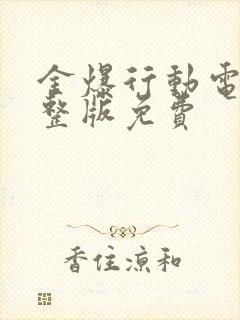 全爆行動電
整版免費
香住涼和